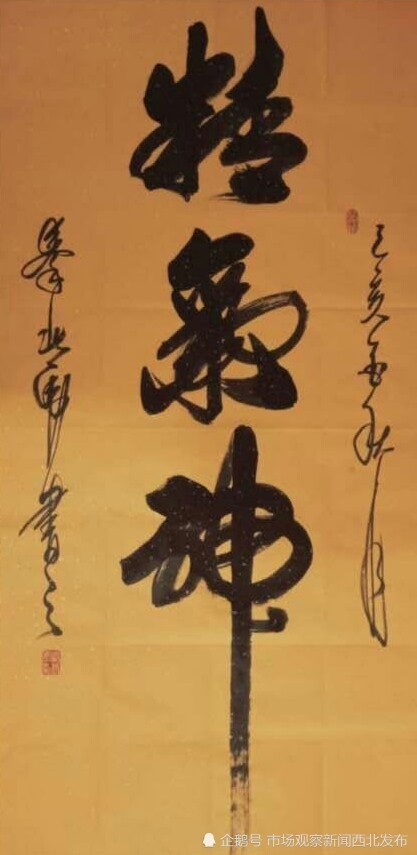 己亥金秋月
精氣神
書之
企鹅号 市场观察新闻西北发布